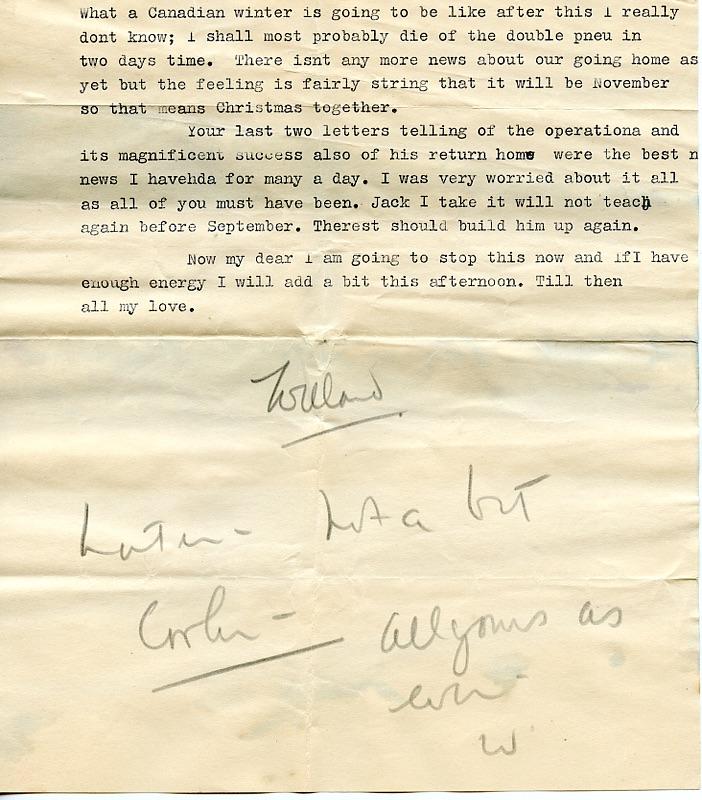 What a Canadian winter is going to be like after this I really
dont know; I shall most probably die of the double pneu in
two days time. There isnt any more news about our going home as
yet but the feeling is fairly string that it will be November
so that means Christmas together.
Your last two letters telling of the operationa and
its magnificent success also of his return home were the best n
news I havehda for many a day. I was very worried about it all
as all of you must have been. Jack I take it will not teach
again before September. Therest should build him up again.
Now my dear I am going to stop this now and ifI have
enough energy I will add a bit this afternoon. Till then
all my love.
Welland
Later - Not a bit
Cooler - All yours as
ever
W